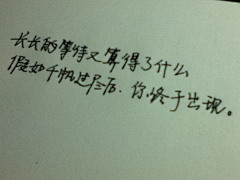 长长的等待又算得了什么
假如千帆过尽后.你终于出现。